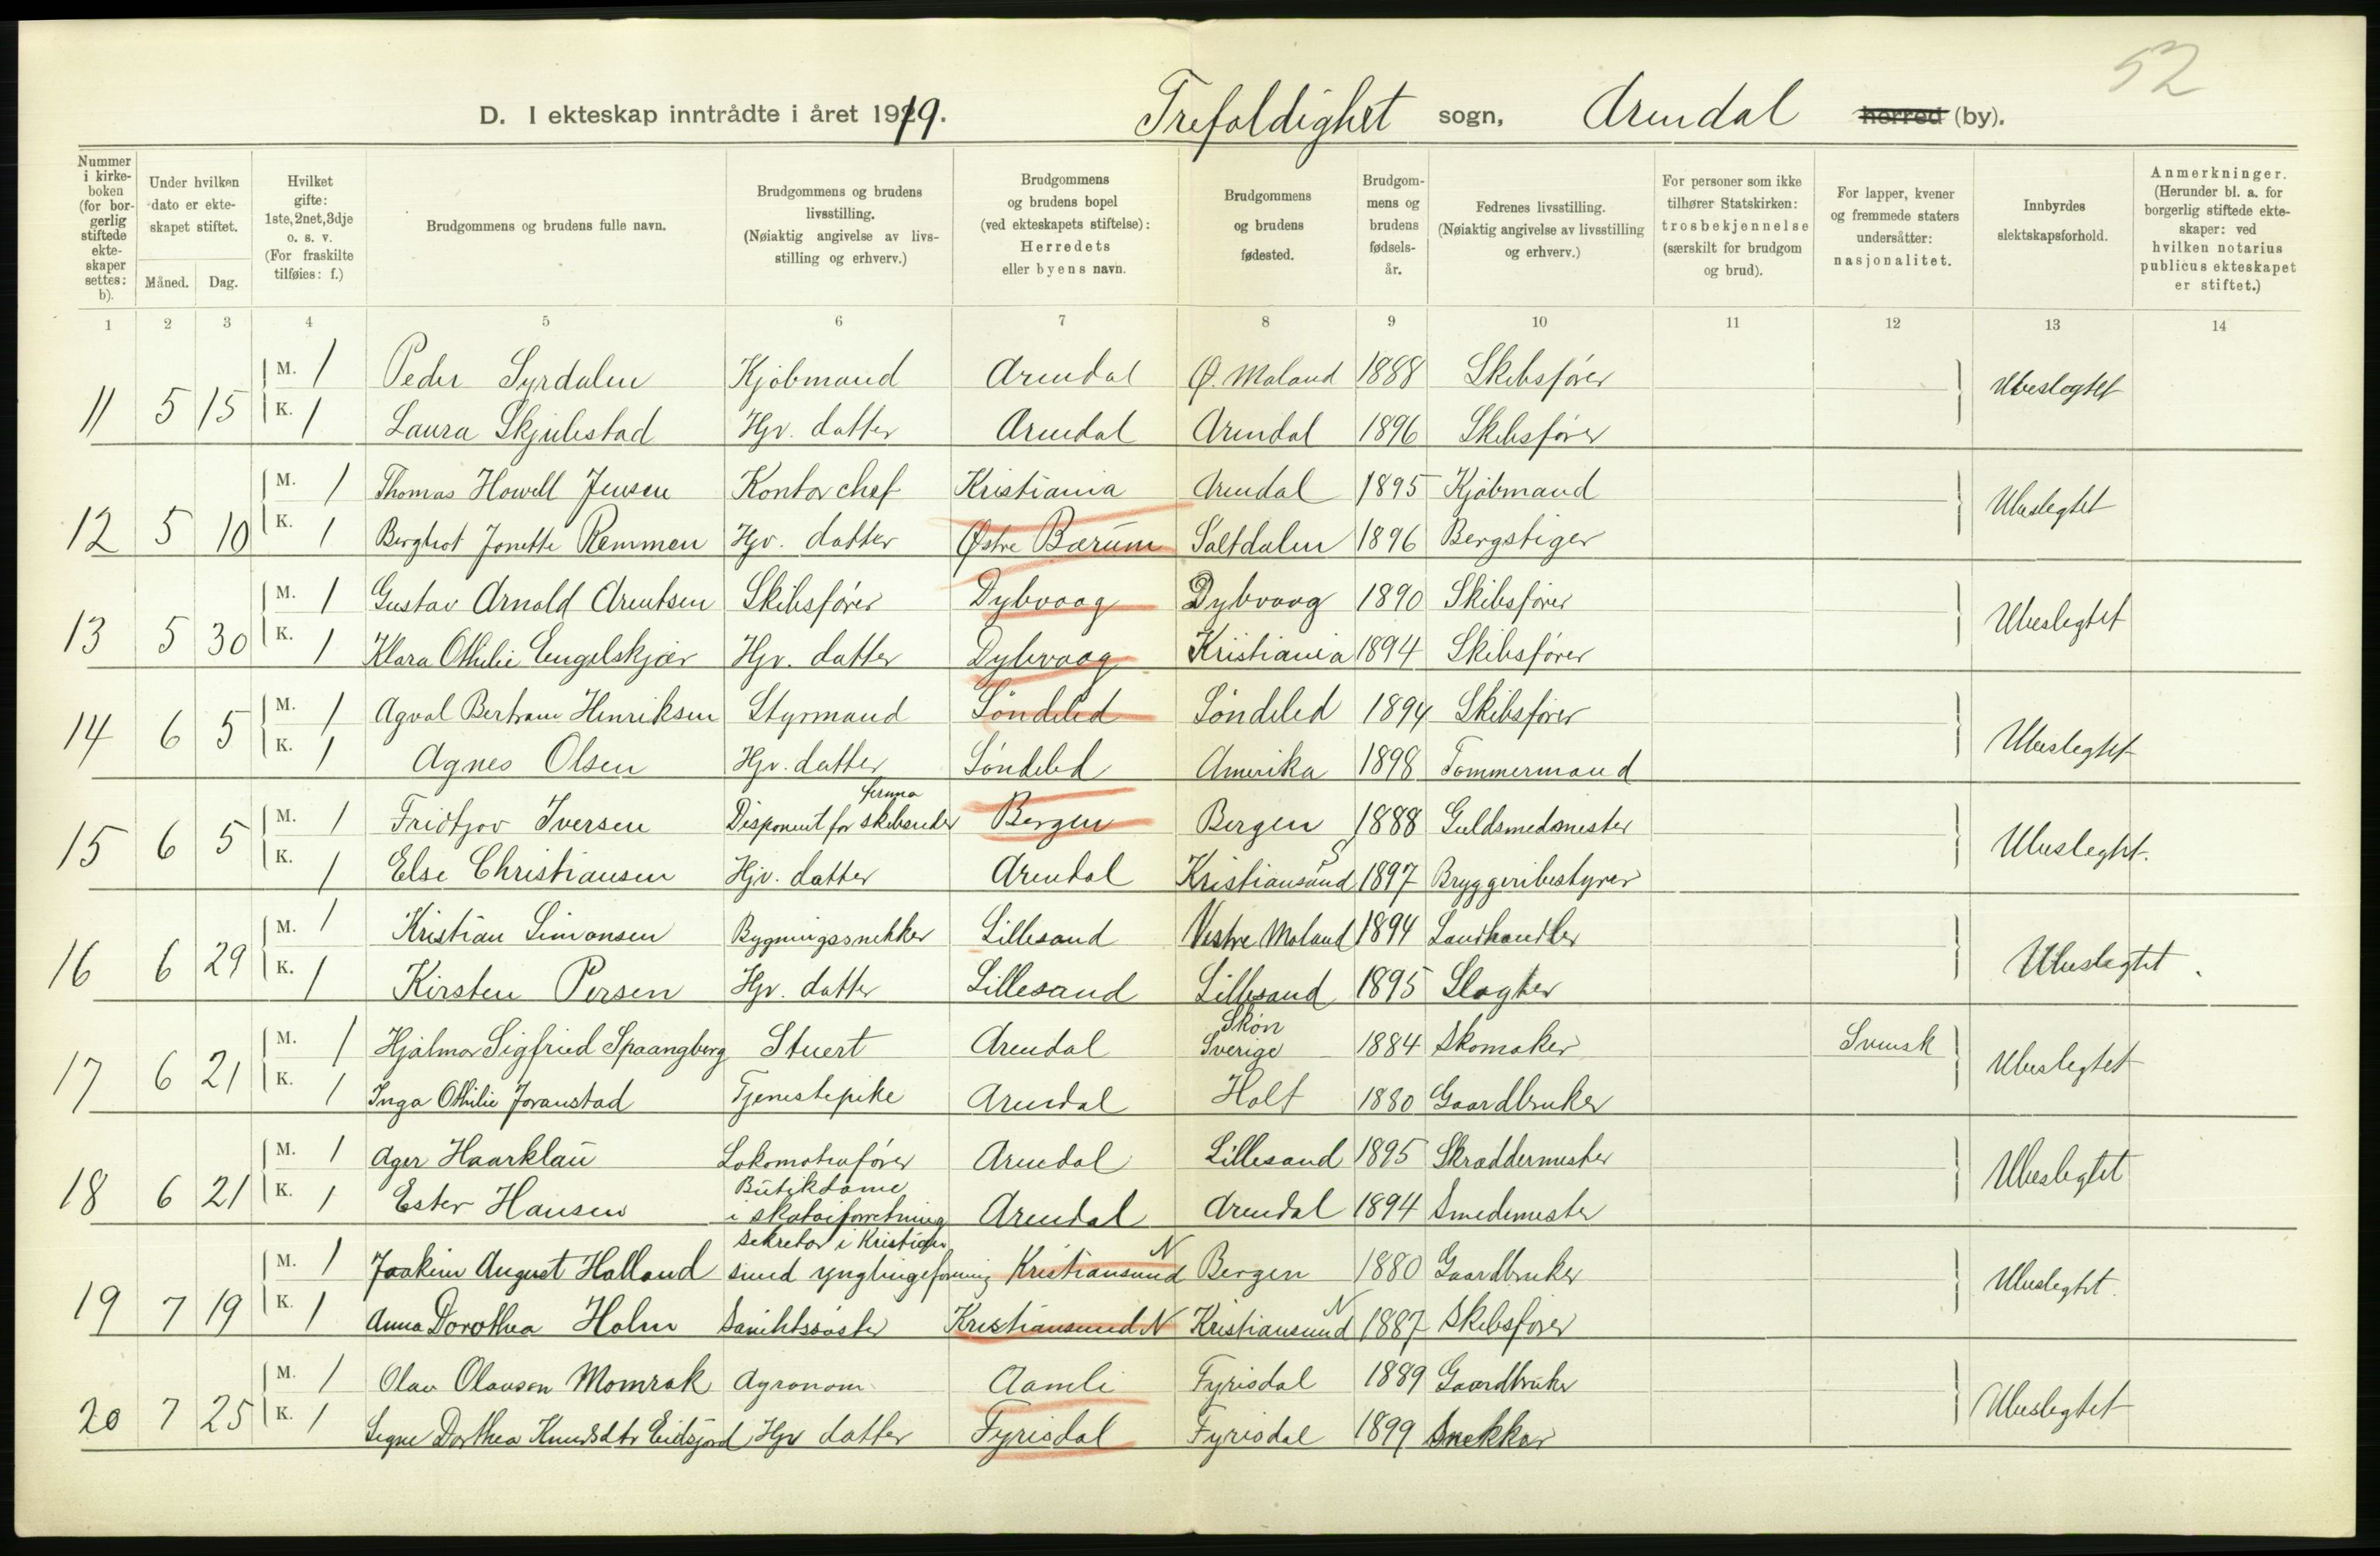 52
D. I ekteskap inntrådte i året 1919. Trefoldighet sogn, Arendal herred (by).
Nummer i kirkeboken (for borgerlig stiftede ekteskaper settes: b).
Under hvilken dato er ekteskapet stiftet.
Måned. Dag.
Hvilket gifte: 1ste, 2net, 3dje o. s. v. (For fraskilte tilføies: f.)
Brudgommens og brudens fulle navn.
Brudgommens og brudens livsstilling. (Nøiaktig angivelse av livsstilling og erhverv.)
Brudgommens og brudens bopel (ved ekteskapets stiftelse): Herredets eller byens navn.
Brudgommens og brudens fødested.
Brudgommens og brudens fødselsår.
Fedrenes livsstilling. (Nøiaktig angivelse av livsstilling og erhverv.)
For personer som ikke tilhører Statskirken: trosbekjennelse (særskilt for brudgom og brud).
For lapper, kvener og fremmede staters undersåtter: nasjonalitet.
Innbyrdes slektskapsforhold.
Anmerkninger. (Herunder bl. a. for borgerlig stiftede ekteskaper: ved hvilken notarius publicus ekteskapet er stiftet.)
1 2 3 4 5 6 7 8 9 10 11 12 13 14
11 5 15 M. 1 Peder Syrdalen Kjøbmand Arendal Ø. Moland 1888 Skibsfører Ubeslegtet
K. 1 Laura Skjulestad Hjv. datter Arendal Arendal 1896 Skibsfører
12 5 10 M. 1 Thomas Howell Jensen Kontorchef Kristiania Arendal 1895 Kjøbmand Ubeslegtet
K. 1 Bergliot Jonette Remmen Hjv. datter Østre Bærum Saltdalen 1896 Bergstiger
13 5 30 M. 1 Gustav Arnold Arentsen Skibsfører Dybvaag Dybvaag 1890 Skibsfører Ubeslegtet
K. 1 Klara Othilie Engelskjær Hjv. datter Dybvaag Kristiania 1894 Skibsfører
14 6 5 M. 1 Agval Bertram Henriksen Styrmand Søndeled Søndeled 1894 Skibsfører Ubeslegtet
K. 1 Agnes Olsen Hjv. datter Søndeled Amerika 1898 Tømmermand
15 6 5 M. 1 Fridtjov Iversen Disponent for skibsreder firma Bergen Bergen 1888 Guldsmedmester Ubeslegtet.
K. 1 Else Christiansen Hjv. datter Arendal Kristiansand S 1897 Bryggeribestyrer
16 6 29 M. 1 Kristian Simonsen Bygningssnekker Lillesand Vestre Moland 1894 Landhandler Ubeslegtet.
K. 1 Kirsten Persen Hjv. datter Lillesand Lillesand 1895 Slagter
17 6 21 M. 1 Hjalmar Sigfried Spaangberg Stuert Arendal Skön Sverige 1884 Skomaker Svensk Ubeslegtet
K. 1 Inga Othilie Joranstad Tjenestepike Arendal Holt 1880 Gaardbruker
18 6 21 M. 1 Ager Haarklau Lokomotivfører Arendal Lillesand 1895 Skræddermester Ubeslegtet
K. 1 Ester Hansen Butikdame i skotøiforretning Arendal Arendal 1894 Smedemester
19 7 19 M. 1 Joakim August Holland Sekretær i Kristiansund ynglingeforening Kristiansund N Bergen 1880 Gaardbruker Ubeslegtet.
K. 1 Anna Dorothea Holm Sanitetssøster Kristiansund N Kristiansund N 1887 Skibsfører
20 7 25 M. 1 Olav Olavsen Momrak Agronom Aamli Fyrisdal 1889 Gaardbruker Ubeslegtet
K. 1 Signe Dorthea Knudsdtr Eidsjord Hjv datter Fyrisdal Fyrisdal 1899 Snekker